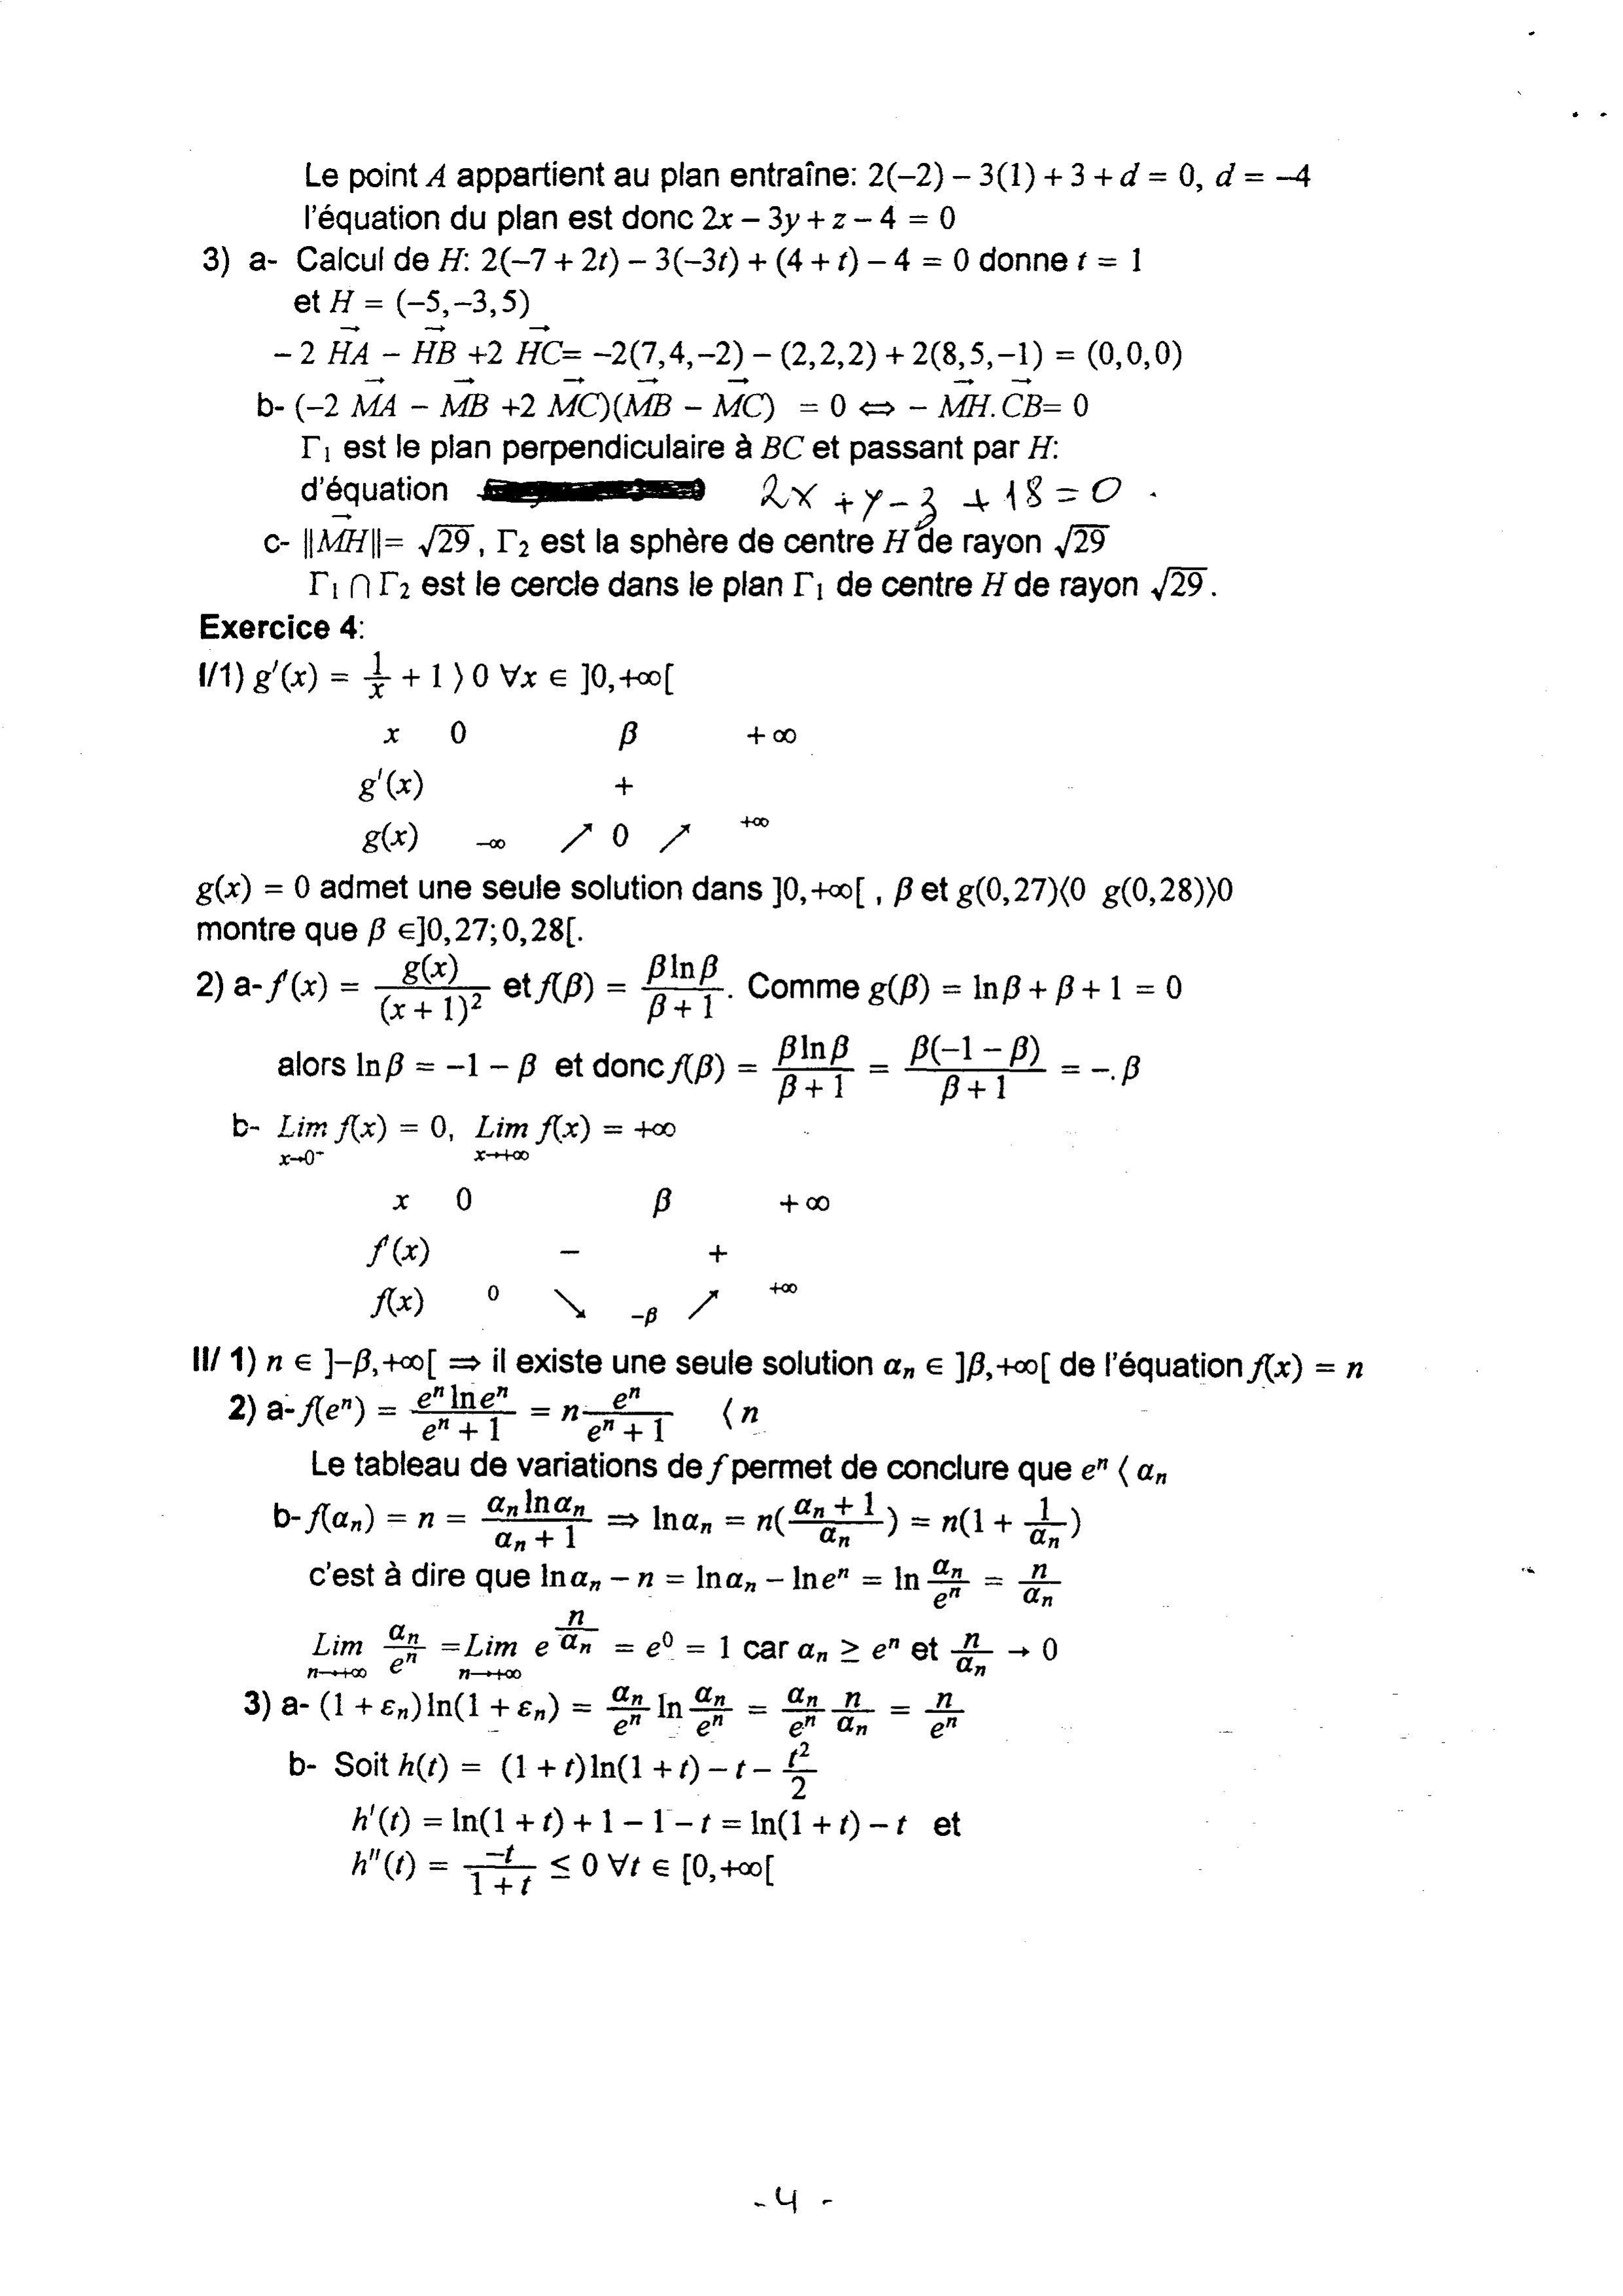 Le point A appartient au plan entraîne: 2(−2) − 3(1) + 3 + d = 0, d = −4
l'équation du plan est donc 2x − 3y + z − 4 = 0
3) a- Calcul de H: 2(−7 + 2t) − 3(−3t) + (4 + t) − 4 = 0 donne t = 1
et H = (−5,−3,5)
− 2 HA→ − HB→ +2 HC→= −2(7,4,−2) − (2,2,2) + 2(8,5,−1) = (0,0,0)
b- (−2 MA→ − MB→ +2 MC→)(MB→ − MC→) = 0 ⇔ − MH→.CB→= 0
Γ₁ est le plan perpendiculaire à BC et passant par H:
d'équation 2x + y − z + 18 = 0 .
c- ||MH→||= √29 , Γ₂ est la sphère de centre H de rayon √29
Γ₁ ∩ Γ₂ est le cercle dans le plan Γ₁ de centre H de rayon √29.
Exercice 4:
I/1) g'(x) = 1/x + 1 ⟩ 0 ∀x ∈ ]0,+∞[
x 0 β + ∞
g'(x) +
g(x) −∞ ↗ 0 ↗ +∞
g(x) = 0 admet une seule solution dans ]0,+∞[ , β et g(0,27)⟨0 g(0,28)⟩0
montre que β ∈]0,27;0,28[.
2) a- f'(x) = g(x)/(x + 1)² et f(β) = βlnβ/(β + 1). Comme g(β) = lnβ + β + 1 = 0
alors lnβ = −1 − β et donc f(β) = βlnβ/(β + 1) = β(−1 − β)/(β + 1) = −.β
b- Lim f(x) = 0, Lim f(x) = +∞
x→0⁺ x→+∞
x 0 β + ∞
f'(x) − +
f(x) 0 ↘ −β ↗ +∞
II/ 1) n ∈ ]−β,+∞[ ⇒ il existe une seule solution αₙ ∈ ]β,+∞[ de l'équation f(x) = n
2) a- f(eⁿ) = eⁿ ln eⁿ/(eⁿ + 1) = n eⁿ/(eⁿ + 1) ⟨ n
Le tableau de variations de f permet de conclure que eⁿ ⟨ αₙ
b- f(αₙ) = n = αₙ lnαₙ/(αₙ + 1) ⇒ lnαₙ = n((αₙ + 1)/αₙ) = n(1 + 1/αₙ)
c'est à dire que lnαₙ − n = lnαₙ − lneⁿ = ln αₙ/eⁿ = n/αₙ
Lim αₙ/eⁿ =Lim e^(n/αₙ) = e⁰ = 1 car αₙ ≥ eⁿ et n/αₙ → 0
n→+∞ n→+∞
3) a- (1 + εₙ)ln(1 + εₙ) = αₙ/eⁿ ln αₙ/eⁿ = αₙ/eⁿ n/αₙ = n/eⁿ
b- Soit h(t) = (1 + t)ln(1 + t) − t − t²/2
h'(t) = ln(1 + t) + 1 − 1 − t = ln(1 + t) − t et
h''(t) = −t/(1 + t) ≤ 0 ∀t ∈ [0,+∞[
- 4 -